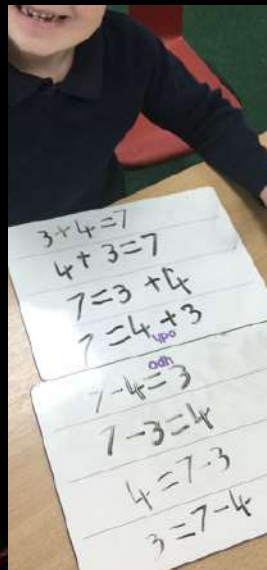 3+4=7
4+3=7
7=3+4
7=4+3
ypo
odh
7-4=3
7-3=4
4=7-3
3=7-4